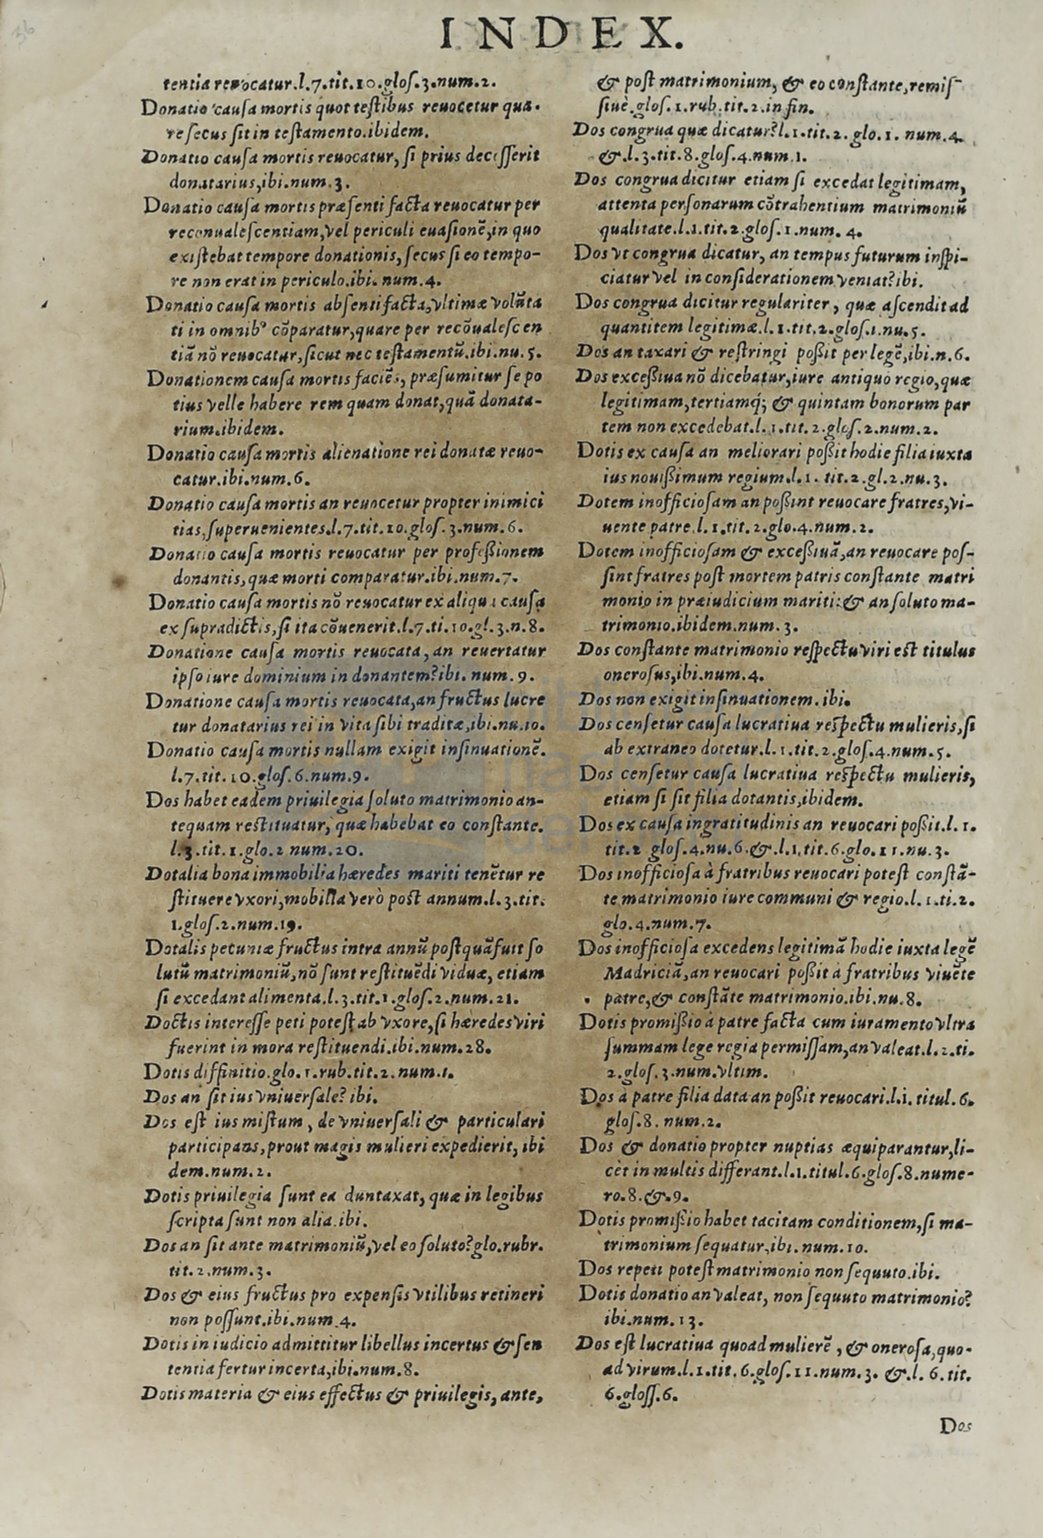 INDEX.
tentia reuocatur.l.7.tit.10.glos.3.num.2.
Donatio causa mortis quot testibus reuocetur qua-
re secus sit in testamento.ibidem.
Donatio causa mortis reuocatur, si prius decesserit
donatarius,ibi.num.3.
Donatio causa mortis præsenti facta reuocatur per
reconualescentiam,vel periculi euasionẽ,in quo
existebat tempore donationis, secus si eo tempo-
re non erat in periculo.ibi.num.4.
Donatio causa mortis absenti facta,vltimæ volũta
ti in omnibꝰ cõparatur,quare per recõualescen
tiã nõ reuocatur,sicut nec testamentũ.ibi.nu.5.
Donationem causa mortis faciẽs, præsumitur se po
tius velle habere rem quam donat,quã donata-
rium.ibidem.
Donatio causa mortis alienatione rei donatæ reuo-
catur.ibi.num.6.
Donatio causa mortis an reuocetur propter inimici
tias,superuenientes.l.7.tit.10.glos.3.num.6.
Donatio causa mortis reuocatur per professionem
donantis,quæ morti comparatur.ibi.num.7.
Donatio causa mortis nõ reuocatur ex aliqua causa
ex supradictis,si ita cõuenerit.l.7.ti.10.gl.3.n.8.
Donatione causa mortis reuocata,an reuertatur
ipso iure dominium in donantem?ibi.num.9.
Donatione causa mortis reuocata,an fructus lucre
tur donatarius rei in vita sibi traditæ,ibi.nu.10.
Donatio causa mortis nullam exigit insinuationẽ.
l.7.tit.10.glos.6.num.9.
Dos habet eadem priuilegia soluto matrimonio an-
tequam restituatur, quæ habebat eo constante.
l.3.tit.1.glo.2 num.20.
Dotalia bona immobilia hæredes mariti tenẽtur re
stituere vxori,mobilia verò post annum.l.3.tit.
1.glos.2.num.19.
Dotalis pecuniæ fructus intra annũ postquã fuit so
lutũ matrimoniũ,nõ sunt restituẽdi viduæ, etiam
si excedant alimenta.l.3.tit.1.glos.2.num.21.
Doctis interesse peti potest ab vxore,si hæredes viri
fuerint in mora restituendi.ibi.num.28.
Dotis diffinitio.glo.1.rub.tit.2.num.1.
Dos an sit ius vniuersale? ibi.
Dos est ius mistum, de vniuersali & particulari
participans,prout magis mulieri expedierit, ibi
dem.num.2.
Dotis priuilegia sunt ea duntaxat, quæ in legibus
scripta sunt non alia.ibi.
Dos an sit ante matrimoniũ,vel eo soluto?glo.rubr.
tit.2.num.3.
Dos & eius fructus pro expensis vtilibus retineri
non possunt.ibi.num.4.
Dotis in iudicio admittitur libellus incertus & sen
tentia fertur incerta,ibi.num.8.
Dotis materia & eius effectus & priuilegis, ante,
& post matrimonium, & eo constante,remis-
siuè.glos.1.rub.tit.2.in fin.
Dos congrua quæ dicatur?l.1.tit.2.glo.1.num.4.
&.l.3.tit.8.glos.4.num.1.
Dos congrua dicitur etiam si excedat legitimam,
attenta personarum cõtrahentium matrimoniũ
qualitate.l.1.tit.2.glos.1.num.4.
Dos vt congrua dicatur, an tempus futurum inspi-
ciatur vel in considerationem veniat?ibi.
Dos congrua dicitur regulariter, quæ ascendit ad
quantitem legitimæ.l.1.tit.2.glos.1.nu.5.
Dos an taxari & restringi possit per legẽ,ibi.n.6.
Dos excessiua nõ dicebatur,iure antiquo regio,quæ
legitimam,tertiamq́; & quintam bonorum par
tem non excedebat.l.1.tit.2.glos.2.num.2.
Dotis ex causa an meliorari possit hodie filia iuxta
ius nouissimum regium.l.1.tit.2.gl.2.nu.3.
Dotem inofficiosam an possint reuocare fratres,vi-
uente patre.l.1.tit.2.glo.4.num.2.
Dotem inofficiosam & excessiuã,an reuocare pos-
sint fratres post mortem patris constante matri
monio in præiudicium mariti:& an soluto ma-
trimonio.ibidem.num.3.
Dos constante matrimonio respectu viri est titulus
onerosus,ibi.num.4.
Dos non exigit insinuationem.ibi.
Dos censetur causa lucratiua respectu mulieris,si
ab extraneo dotetur.l.1.tit.2.glos.4.num.5.
Dos censetur causa lucratiua respectu mulieris,
etiam si sit filia dotantis,ibidem.
Dos ex causa ingratitudinis an reuocari possit.l.1.
tit.2 glos.4.nu.6.&.l.1.tit.6.glo.11.nu.3.
Dos inofficiosa à fratribus reuocari potest constã-
te matrimonio iure communi & regio.l.1.ti.2.
glo.4.num.7.
Dos inofficiosa excedens legitimã hodie iuxta legẽ
Madriciã,an reuocari possit à fratribus viuẽte
patre,& constãte matrimonio.ibi.nu.8.
Dotis promissio à patre facta cum iuramento vltra
summam lege regia permissam,an valeat.l.2.ti.
2.glos.3.num.vltim.
Dos à patre filia data an possit reuocari.l.1.titul.6.
glos.8.num.2.
Dos & donatio propter nuptias æquiparantur,li-
cèt in multis differant.l.1.titul.6.glos.8.nume-
ro.8.&.9.
Dotis promissio habet tacitam conditionem,si ma-
trimonium sequatur,ibi.num.10.
Dos repeti potest matrimonio non sequuto.ibi.
Dotis donatio an valeat, non sequuto matrimonio?
ibi.num.13.
Dos est lucratiua quoad mulierẽ, & onerosa,quo-
ad virum.l.1.tit.6.glos.11.num.3. &.l.6.tit.
6.gloss.6.
Dos